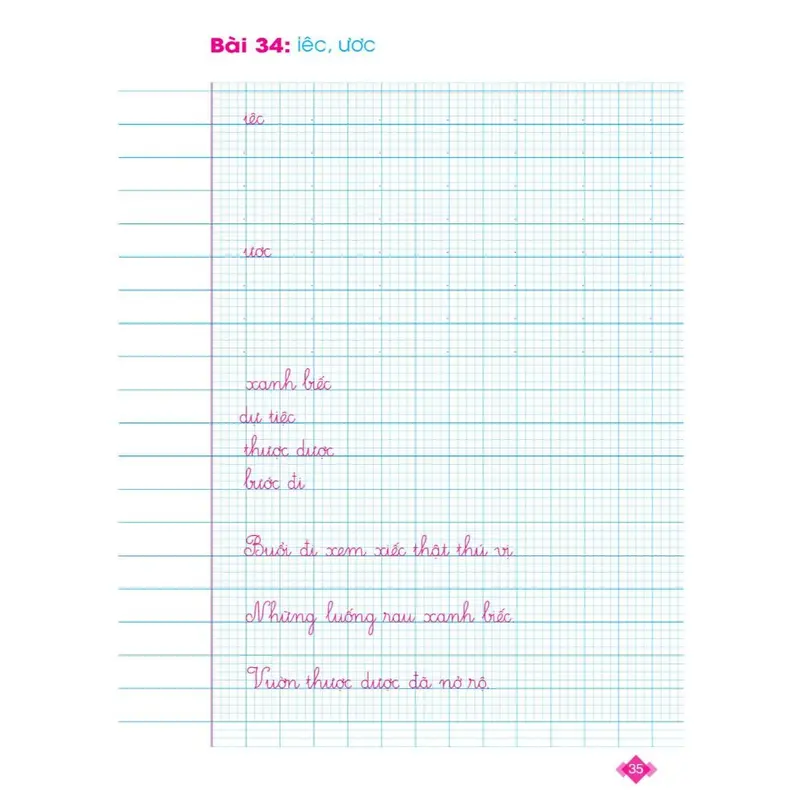 Bài 34: iêc, ươc
iêc
ươc
xanh biếc
dự tiệc
thược dược
bước đi
Buổi đi xem xiếc thật thú vị
Những luống rau xanh biếc.
Vườn thược dược đã nở rộ.
35